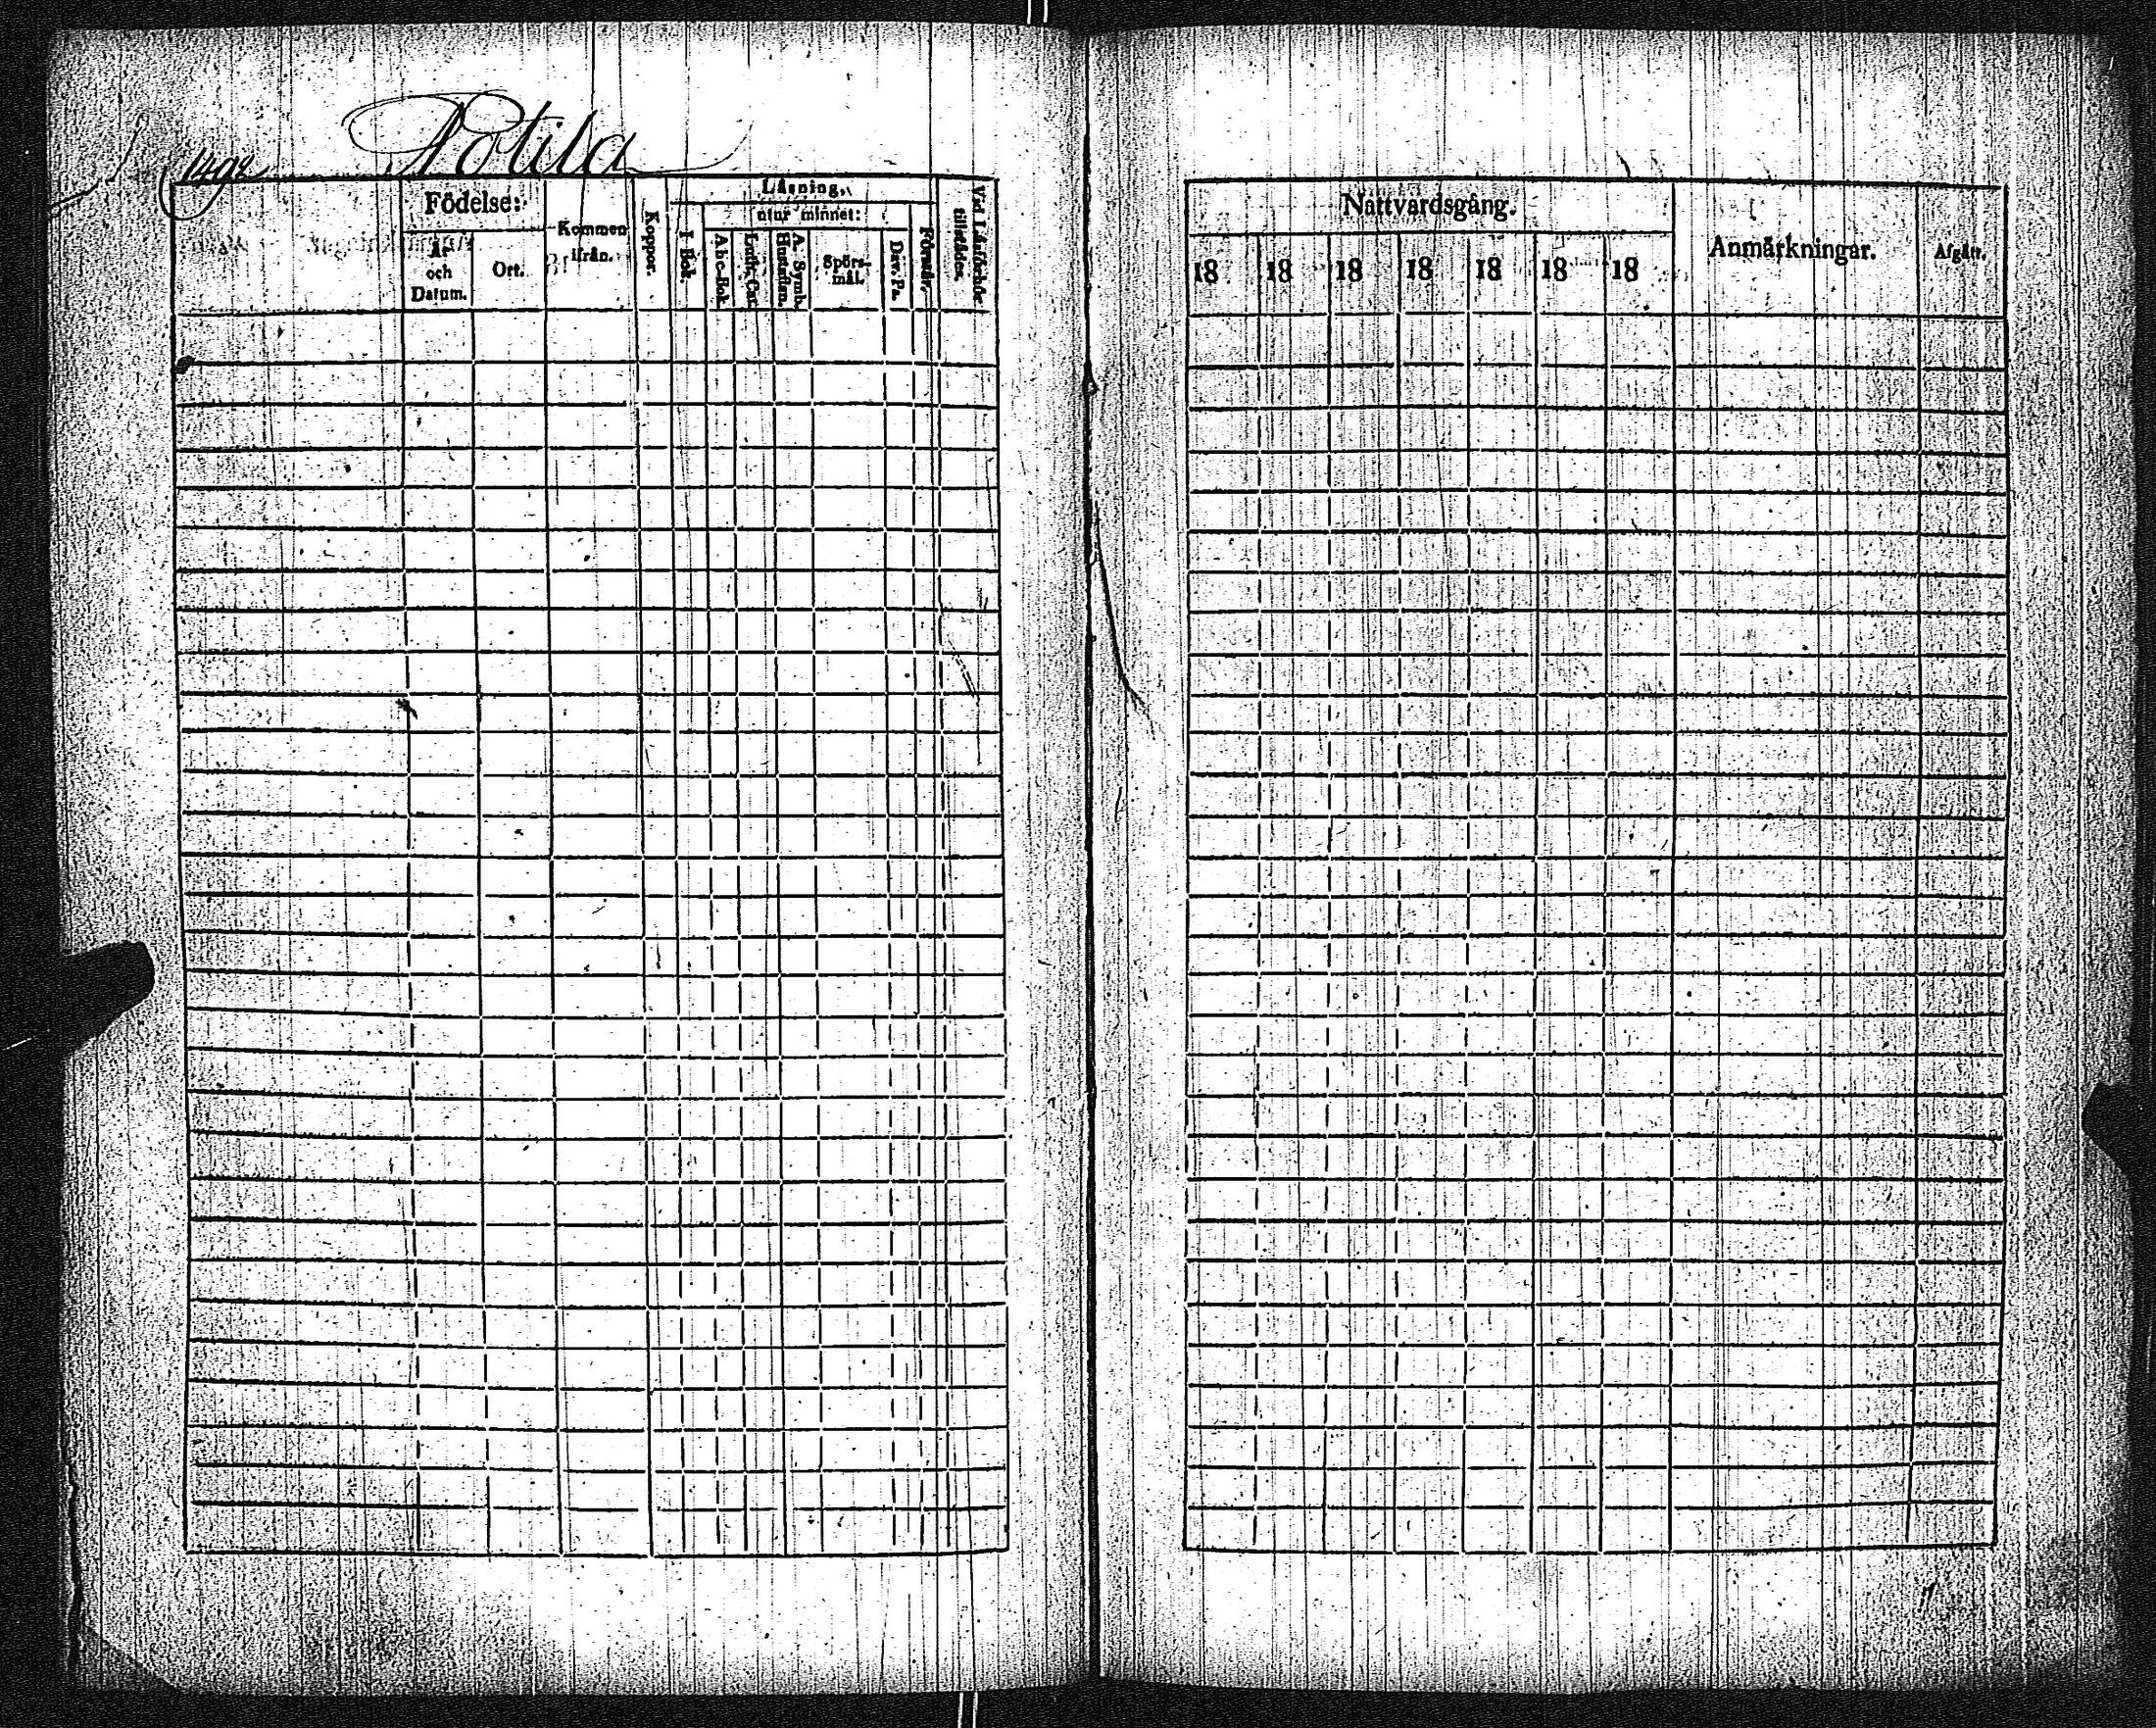 Nötila
149.
Födelse:
År och Datum.
Ort.
Kommen ifrån.
Koppor.
Läsning,
I Bok.
utur minnet:
Abc-Bok.
Luth. Cat.
A. Symb. Hustaflan.
Spörs-mål.
Dav. Ps.
Förstår.
Vid Läsförhör tillstädes.
Nattvardsgång.
18 18 18 18 18 18 18
Anmärkningar.
Afgått.